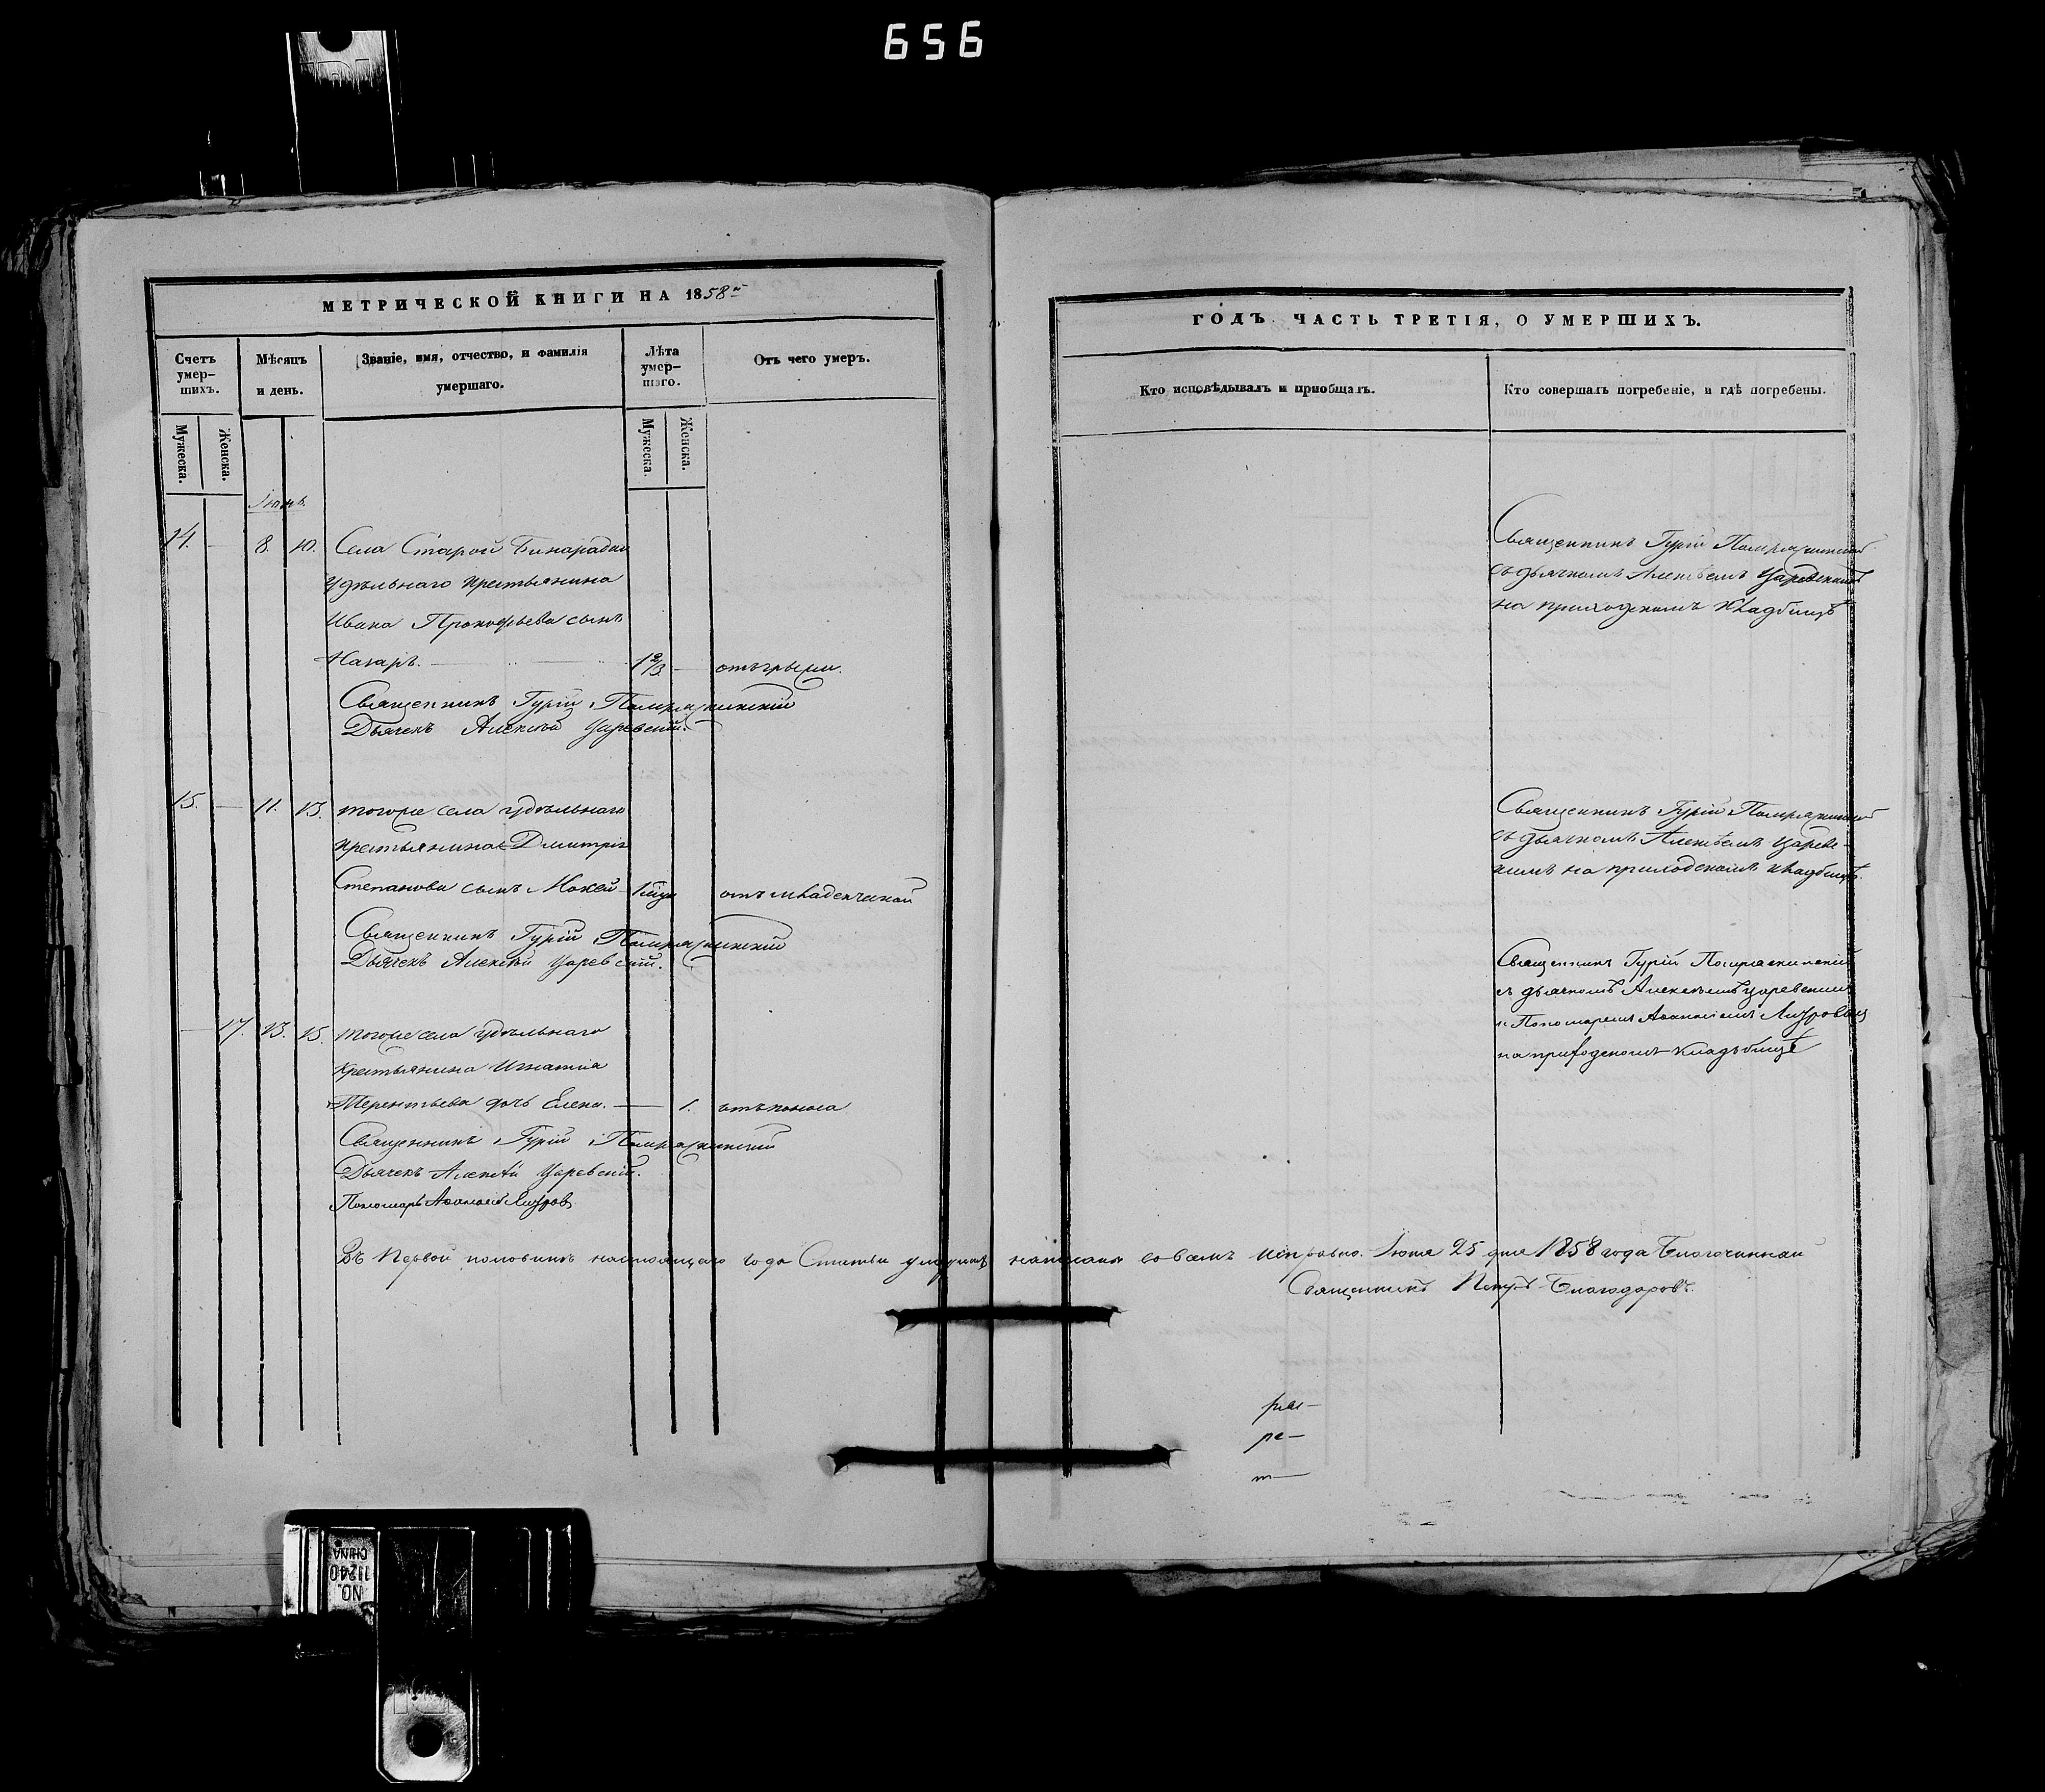 656
МЕТРИЧЕСКОЙ КНИГИ НА 1858й
Счетъ умер-шихъ.
Мѣсяцъ и день.
Званіе, имя, отчество, и фамилія умершаго.
Лѣта умер-шаго.
Отъ чего умеръ.
Мужеска.
Женска.
Мужеска.
Женска.
Іюнь.
14. — 8. 10. Села Старой Бинарадки
удѣльнаго крестьянина
Ивана Прокофьева сынъ
Назаръ. — 1 2/3 — отъ грыжи.
Священникъ Гурій
Дьячекъ Алексѣй Царевскій.
15. — 11. 13. тогоже села удѣльнаго
крестьянина Дмитрія
Степанова сынъ Мокей 1 году отъ младенческой
Священникъ Гурій
Дьячекъ Алексѣй Царевскій.
— 17. 13. 15. тогоже села удѣльнаго
крестьянина Игнатія
Терентьева дочь Елена. — 1. отъ поноса
Священникъ Гурій
Дьячекъ Алексѣй Царевскій.
Пономарь Аѳанасій
Въ первой половинѣ настоящаго года Статьи умершихъ написаны совсемъ исправно. Іюля 25 дня 1858 года Благочинный
Священникъ Петръ Благодаровъ.
ГОДЪ ЧАСТЬ ТРЕТІЯ, О УМЕРШИХЪ.
Кто исповѣдывалъ и пріобщалъ.
Кто совершалъ погребеніе, и гдѣ погребены.
Священникъ Гурій
съ дьячкомъ Алексѣемъ Царевскимъ
на приходскомъ кладбищѣ
Священникъ Гурій
съ дьячкомъ Алексѣемъ Царевс-
кимъ на приходскомъ кладбищѣ.
Священникъ Гурій
съ дьячкомъ Алексѣемъ Царевскимъ
и Пономаремъ Аѳанасіемъ
на приходскомъ кладъбищѣ
ре—
т—
NO. 11240 CHINA